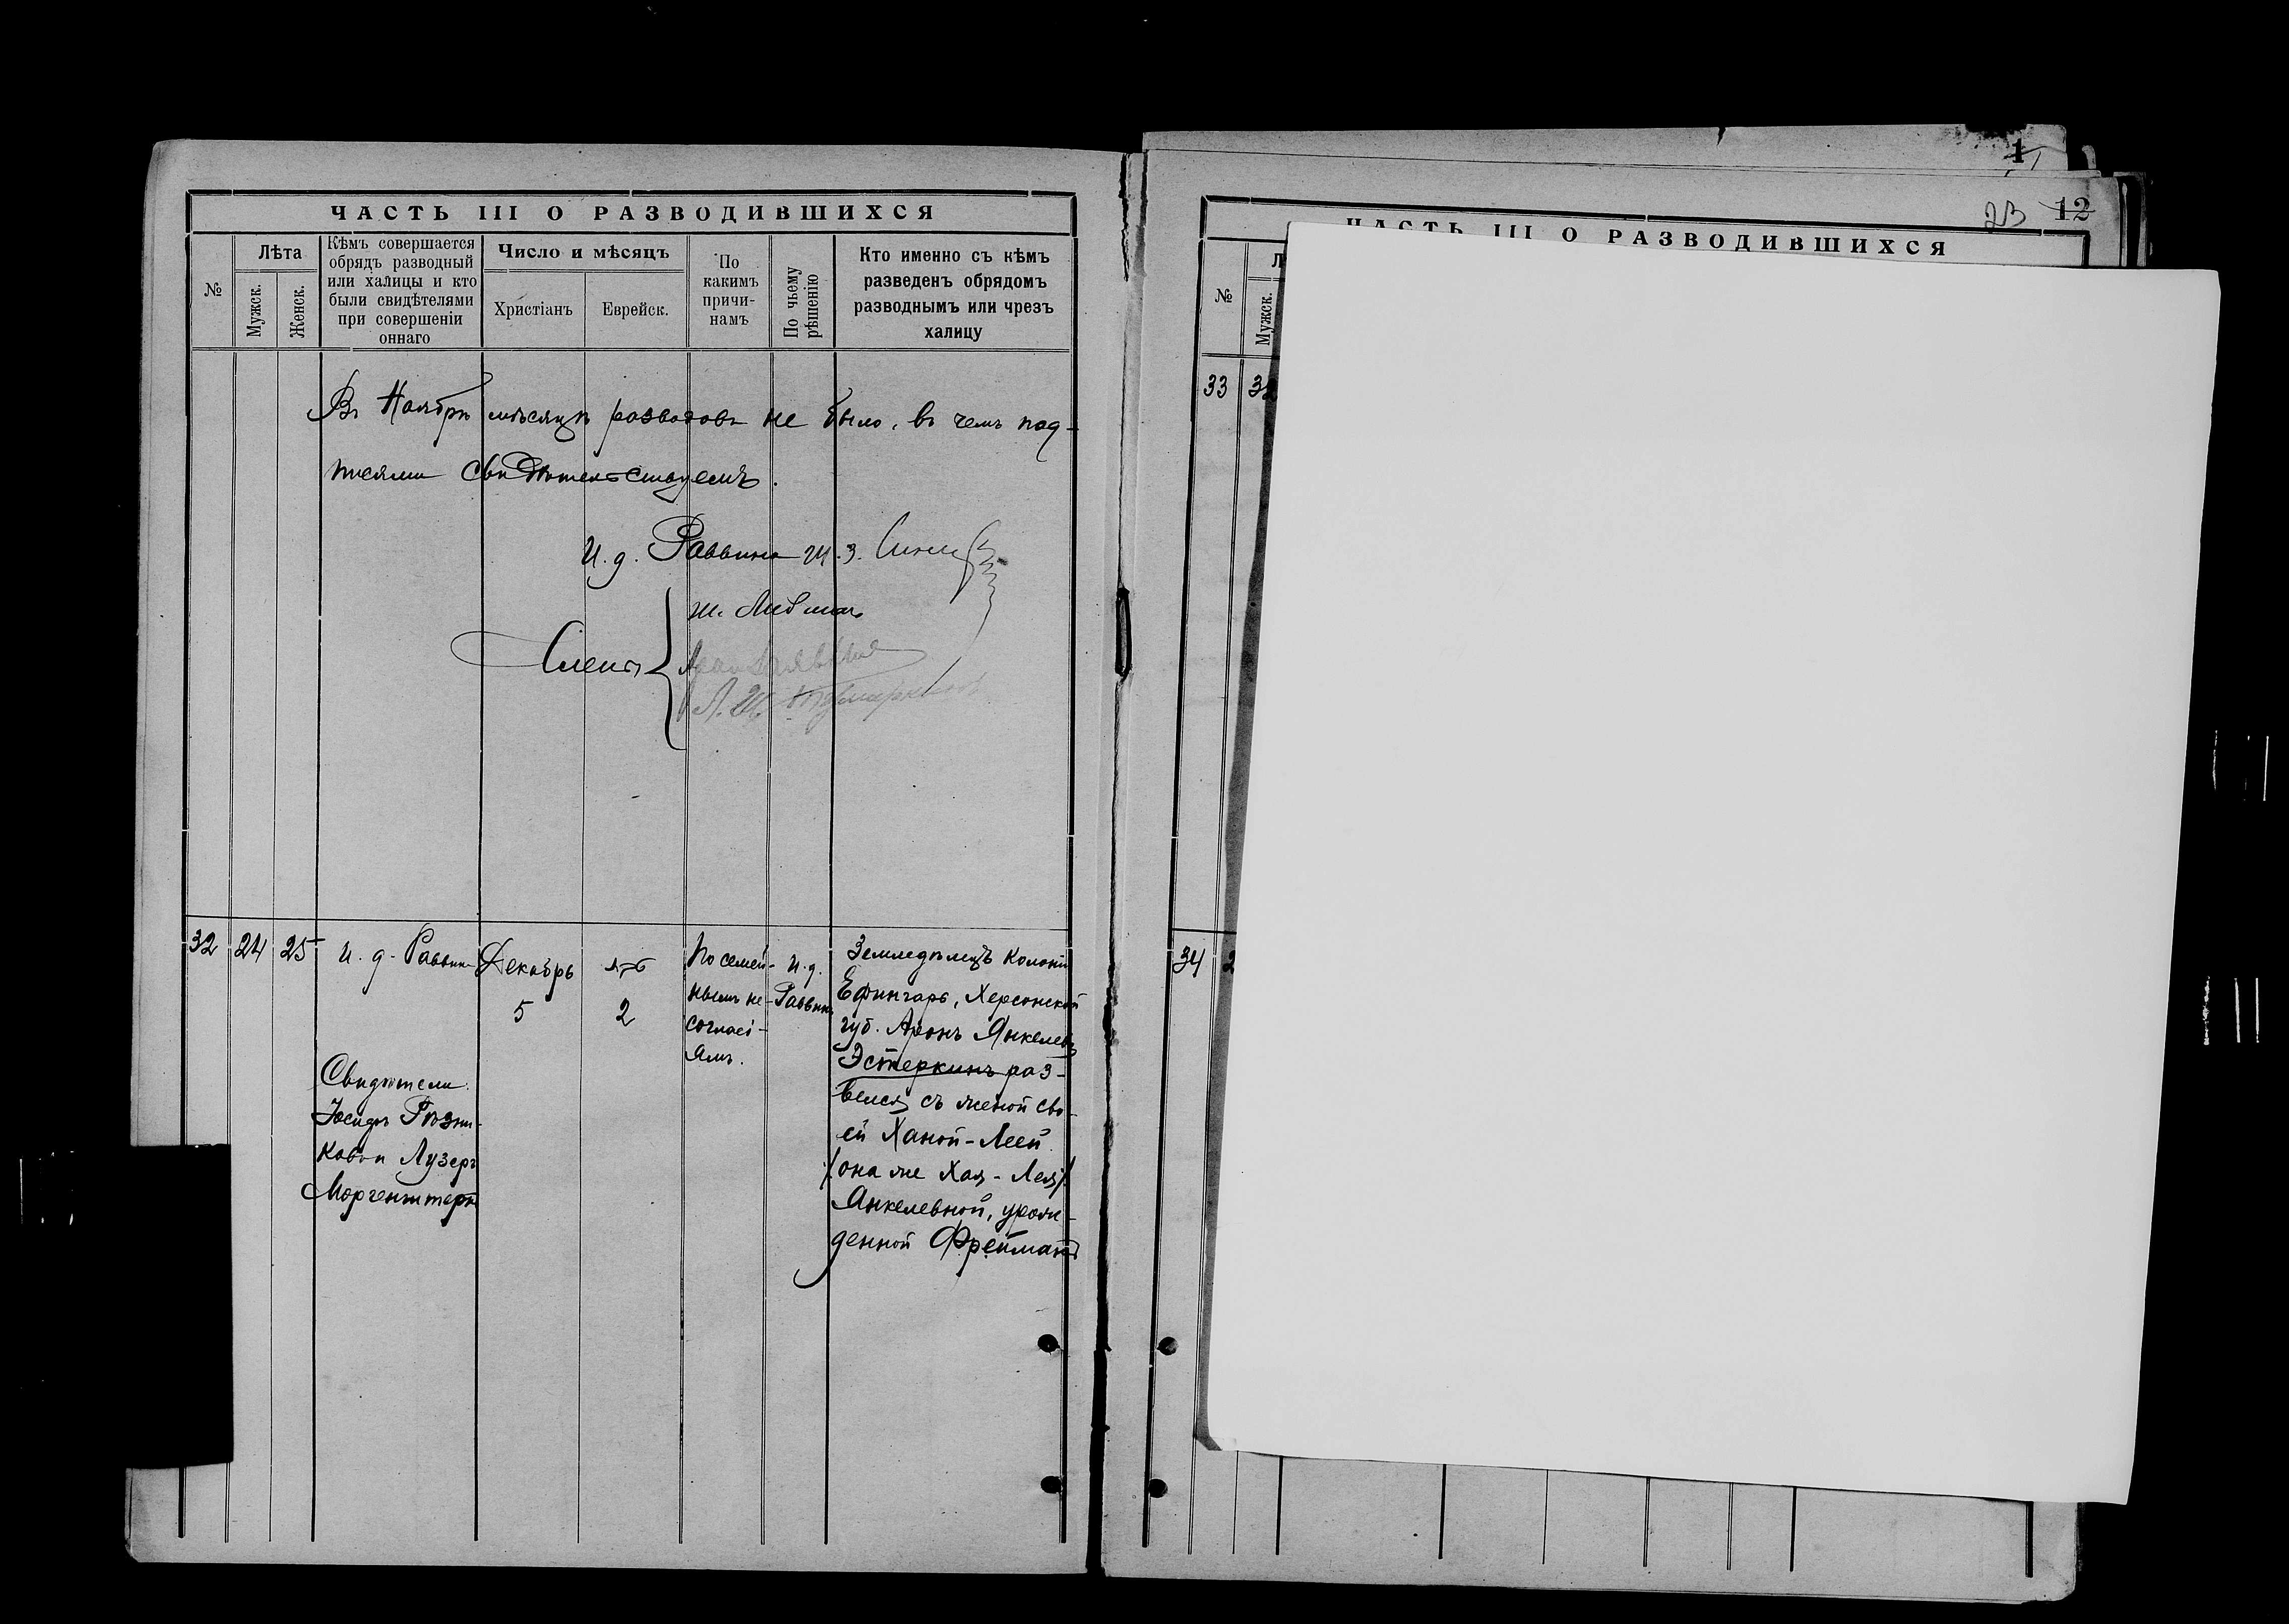 ЧАСТЬ III О РАЗВОДИВШИХСЯ
№
Лѣта
Мужск.
Женск.
Кѣмъ совершается
обрядъ разводный
или халицы и кто
были свидѣтелями
при совершеніи
оннаго
Число и мѣсяцъ
Христіанъ
Еврейск.
По
какимъ
причи-
намъ
По чьему
рѣшенію
Кто именно съ кѣмъ
разведенъ обрядомъ
разводнымъ или чрезъ
халицу
Въ Ноябрѣ мѣсяцѣ разводовъ не было, въ чемъ под-
писями свидѣтельствуемъ.
И. д. Раввина
Члены
32
24
25
И. д. Раввин
Свидѣтели:
Іосифъ Рѣзни-
ковъ и Лузеръ
Моргенштернъ
Декабрь
5
2
По семей-
нымъ не-
согласі-
ямъ.
И. д.
Раввин
Земледѣлецъ колоніи
Ефингаръ, Херсонской
губ. Аронъ Янкелевъ
Эстеркинъ раз-
велся съ женой сво-
ей Ханой-Леей
/она же Хая-Лея/
Янкелевной, урож-
денной Фрейманъ
1
23 12
ЧАСТЬ III О РАЗВОДИВШИХСЯ
№
Мужск.
33
34